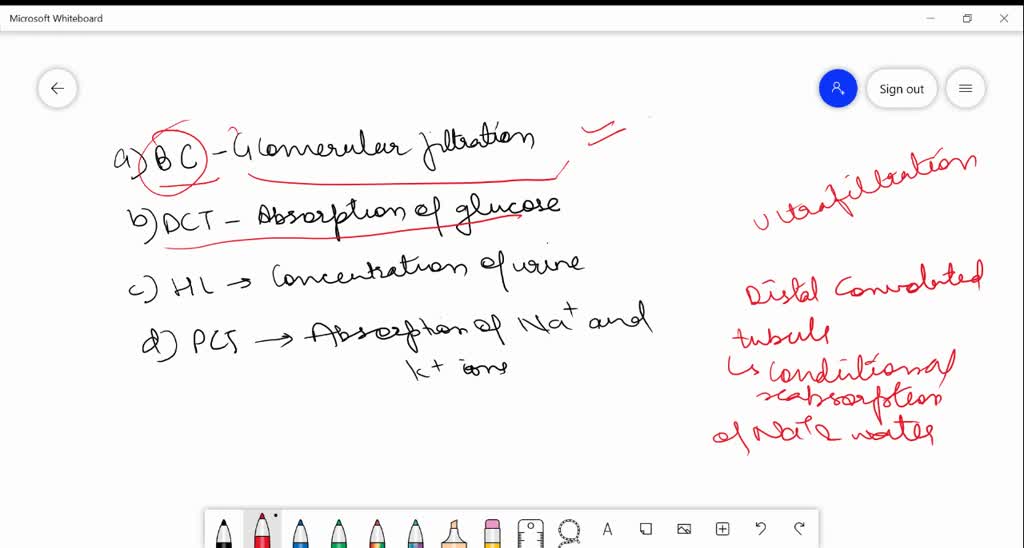 Microsoft Whiteboard
Sign out
a) BC - Glomerular filtration
b) DCT - Absorption of glucose
c) HL → Concentration of urine
d) PCT → Absorption of Na+ and
k+ ions
Ultrafiltration
Distal Convoluted
tubule
↳ Conditional
reabsorption
of Na+ & water
A